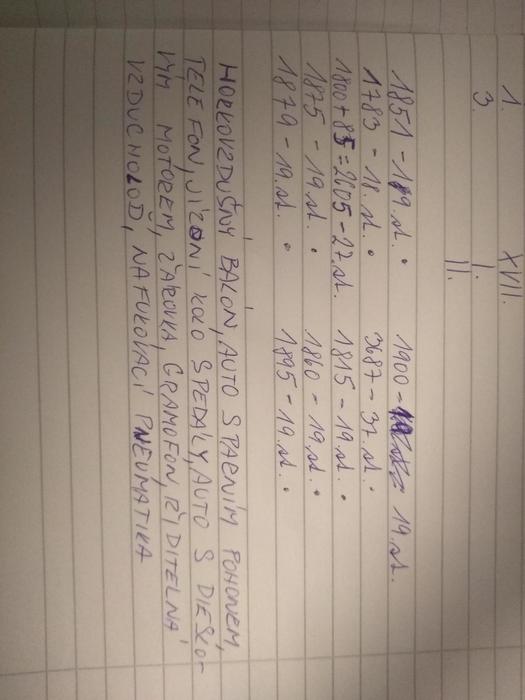 1. XVII.
3. I.
II.
1851 - 19.st. • 1900 - 19.st.
1783 - 18.st. • 3687 - 37.st. •
1800 + 85 = 2605 - 27.st. 1815 - 19.st. •
1875 - 19.st. • 1860 - 19.st. •
1879 - 19.st. • 1895 - 19.st. •
HORKOVZDUŠNÝ BALÓN, AUTO S PARNÍM POHONEM,
TELEFON, JÍZDNÍ KOLO S PEDÁLY, AUTO S DIESLO-
VÝM MOTOREM, ŽÁROVKA, GRAMOFON, ŘIDITELNÁ
VZDUCHOLOĎ, NAFUKOVACÍ PNEUMATIKA